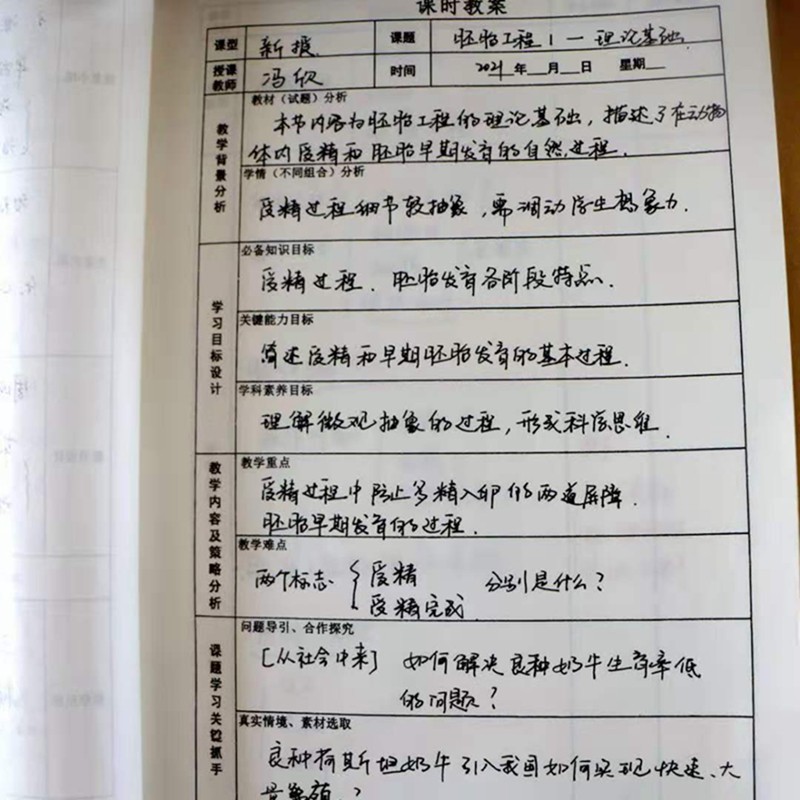 课时教案
课型 新授 课题 胚胎工程1一理论基础
授课教师 冯欣 时间 2021年__月__日 星期__
教学背景分析
教材（试题）分析
本节内容为胚胎工程的理论基础，描述了在动物
体内受精和胚胎早期发育的自然过程.
学情（不同组合）分析
受精过程细节较抽象，需调动学生想象力.
学习目标设计
必备知识目标
受精过程. 胚胎发育各阶段特点.
关键能力目标
简述受精和早期胚胎发育的基本过程.
学科素养目标
理解微观抽象的过程，形成科学思维.
教学内容及策略分析
教学重点
受精过程中防止多精入卵的两道屏障.
胚胎早期发育的过程.
教学难点
两个标志 { 受精
受精完成 分别是什么？
课题学习关键抓手
问题导引、合作探究
[从社会中来] 如何解决良种奶牛生育率低
的问题？
真实情境、素材选取
良种荷斯坦奶牛引入我国如何实现快速、大
量繁殖.？